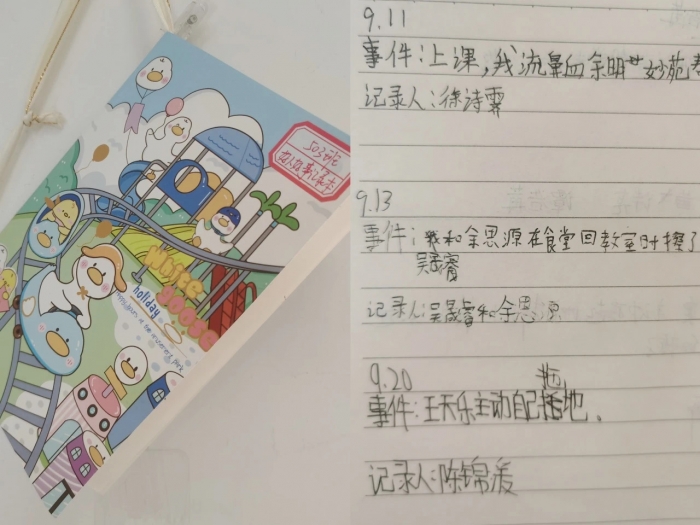 503班
好人好事记录卡
White
goose
holiday
9.11
事件:上课,我流鼻血余明
记录人:徐诗霁
9.13
事件:我和余思源在食堂回教室时
吴晟睿
记录人:吴晟睿和余思源
9.20
拖
事件:王天乐主动自己拖地.
记录人:陈锦